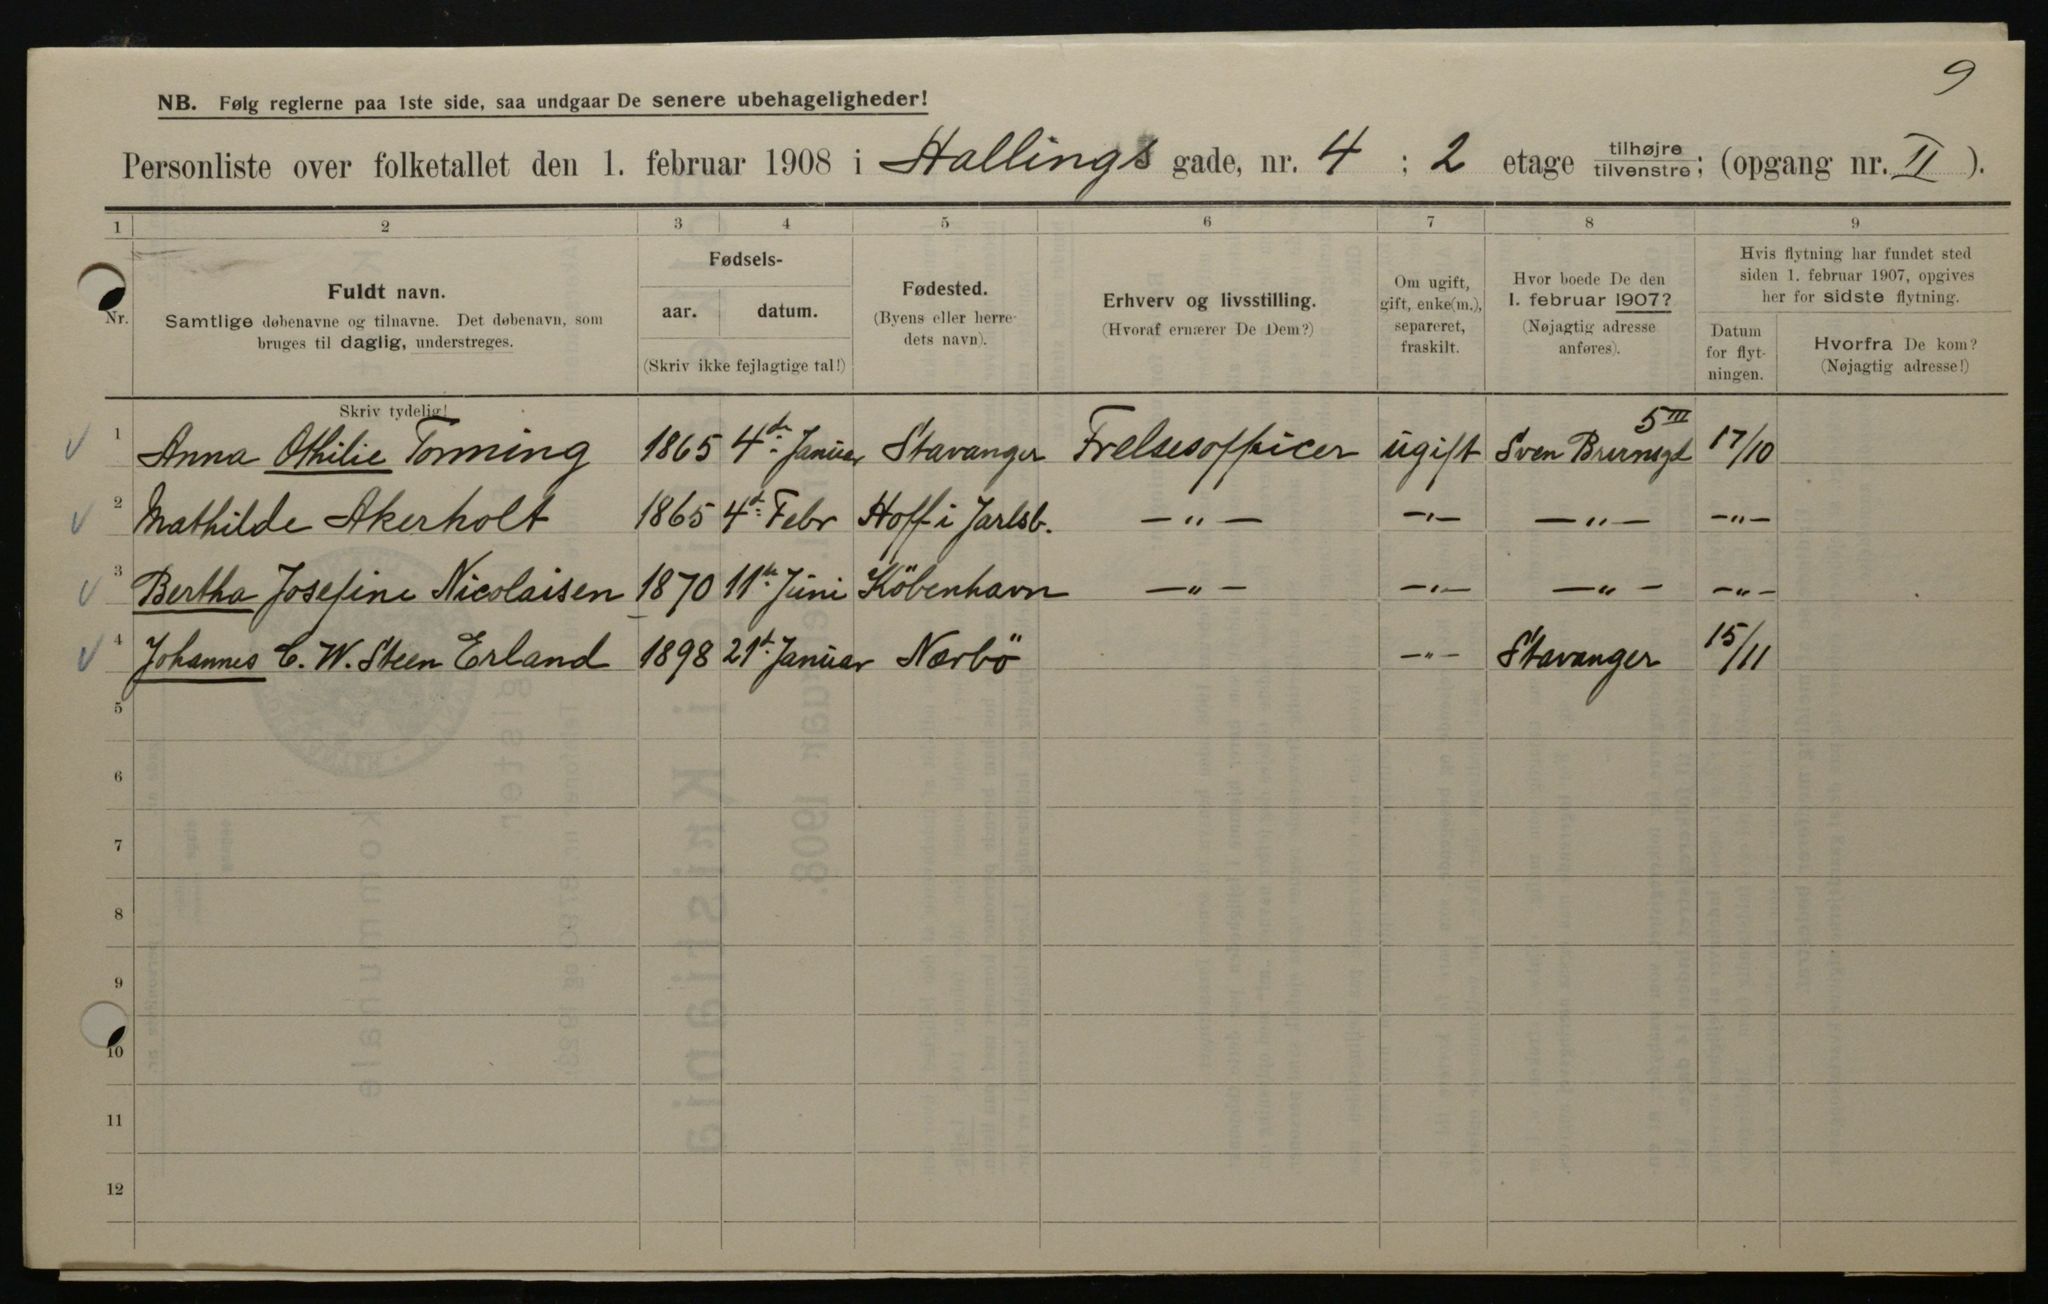 9
NB. Følg reglerne paa 1ste side, saa undgaar De senere ubehageligheder!
Personliste over folketallet den 1. februar 1908 i Hallings gade, nr. 4 ; 2 etage tilhøjre tilvenstre; (opgang nr. II ).
1 2 3 4 5 6 7 8 9
Nr.
Fuldt navn.
Samtlige døbenavne og tilnavne. Det døbenavn, som
bruges til daglig, understreges.
Skriv tydelig!
Fødsels-
aar. datum.
(Skriv ikke fejlagtige tal!)
Fødested.
(Byens eller herre-
dets navn).
Erhverv og livsstilling.
(Hvoraf ernærer De Dem?)
Om ugift,
gift, enke(m.),
separeret,
fraskilt.
Hvor boede De den
1. februar 1907?
(Nøjagtig adresse
anføres).
Hvis flytning har fundet sted
siden 1. februar 1907, opgives
her for sidste flytning.
Datum
for flyt-
ningen.
Hvorfra De kom?
(Nøjagtig adresse!)
1 Anna Othilie Tonning 1865 4de Januar Stavanger Frelsesofficer ugift Sven Bruunsgt 5 III 17/10
2 Mathilde Akerholt 1865 4d Febr Hoff i Jarlsb. —"— —"— —"— —"—
3 Bertha Josefine Nicolaisen 1870 11te Juni Köbenhavn —"— —"— —"— —"—
4 Johannes C. W. Steen Erland 1898 21d Januar Nærbö —"— Stavanger 15/11
5
6
7
8
9
10
11
12